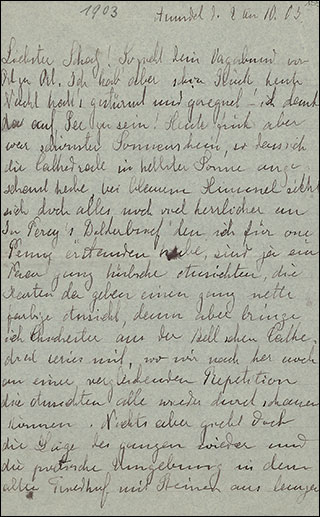 1903 Arundel d. 2 an 10. 03
Liebster Schatz! So zieht dein Vagabund von
Ort zu Ort. Ich hab aber schon Glück heute
Nacht hat's gestürmt und geregnet – ich dank
auf See zu sein! Heute früh aber
war schönster Sonnenschein, so dass ich
die Cathedrale in hellster Sonne ange-
schaut habe, bei blauem Himmel sieht
sich doch alles noch viel herrlicher an
In Percy's Bilderbrief den ich für one
Penny erstanden habe, sind ja ein
Paar ganz hübsche Ansichten, die
Karten da geben einen ganz nette
farbige Ansicht, denn aber bringe
ich Chichester aus der Bell'schen Cathe-
dral series mit, wo wir nach her noch
an einer vergleichenden Repetition
die Ansichten alle wieder durchschauen
können. Nichts aber giebt doch
die Lage des ganzen wieder und
die poetische Umgebung in dem
alten Friedhof mit Steinen aus langer